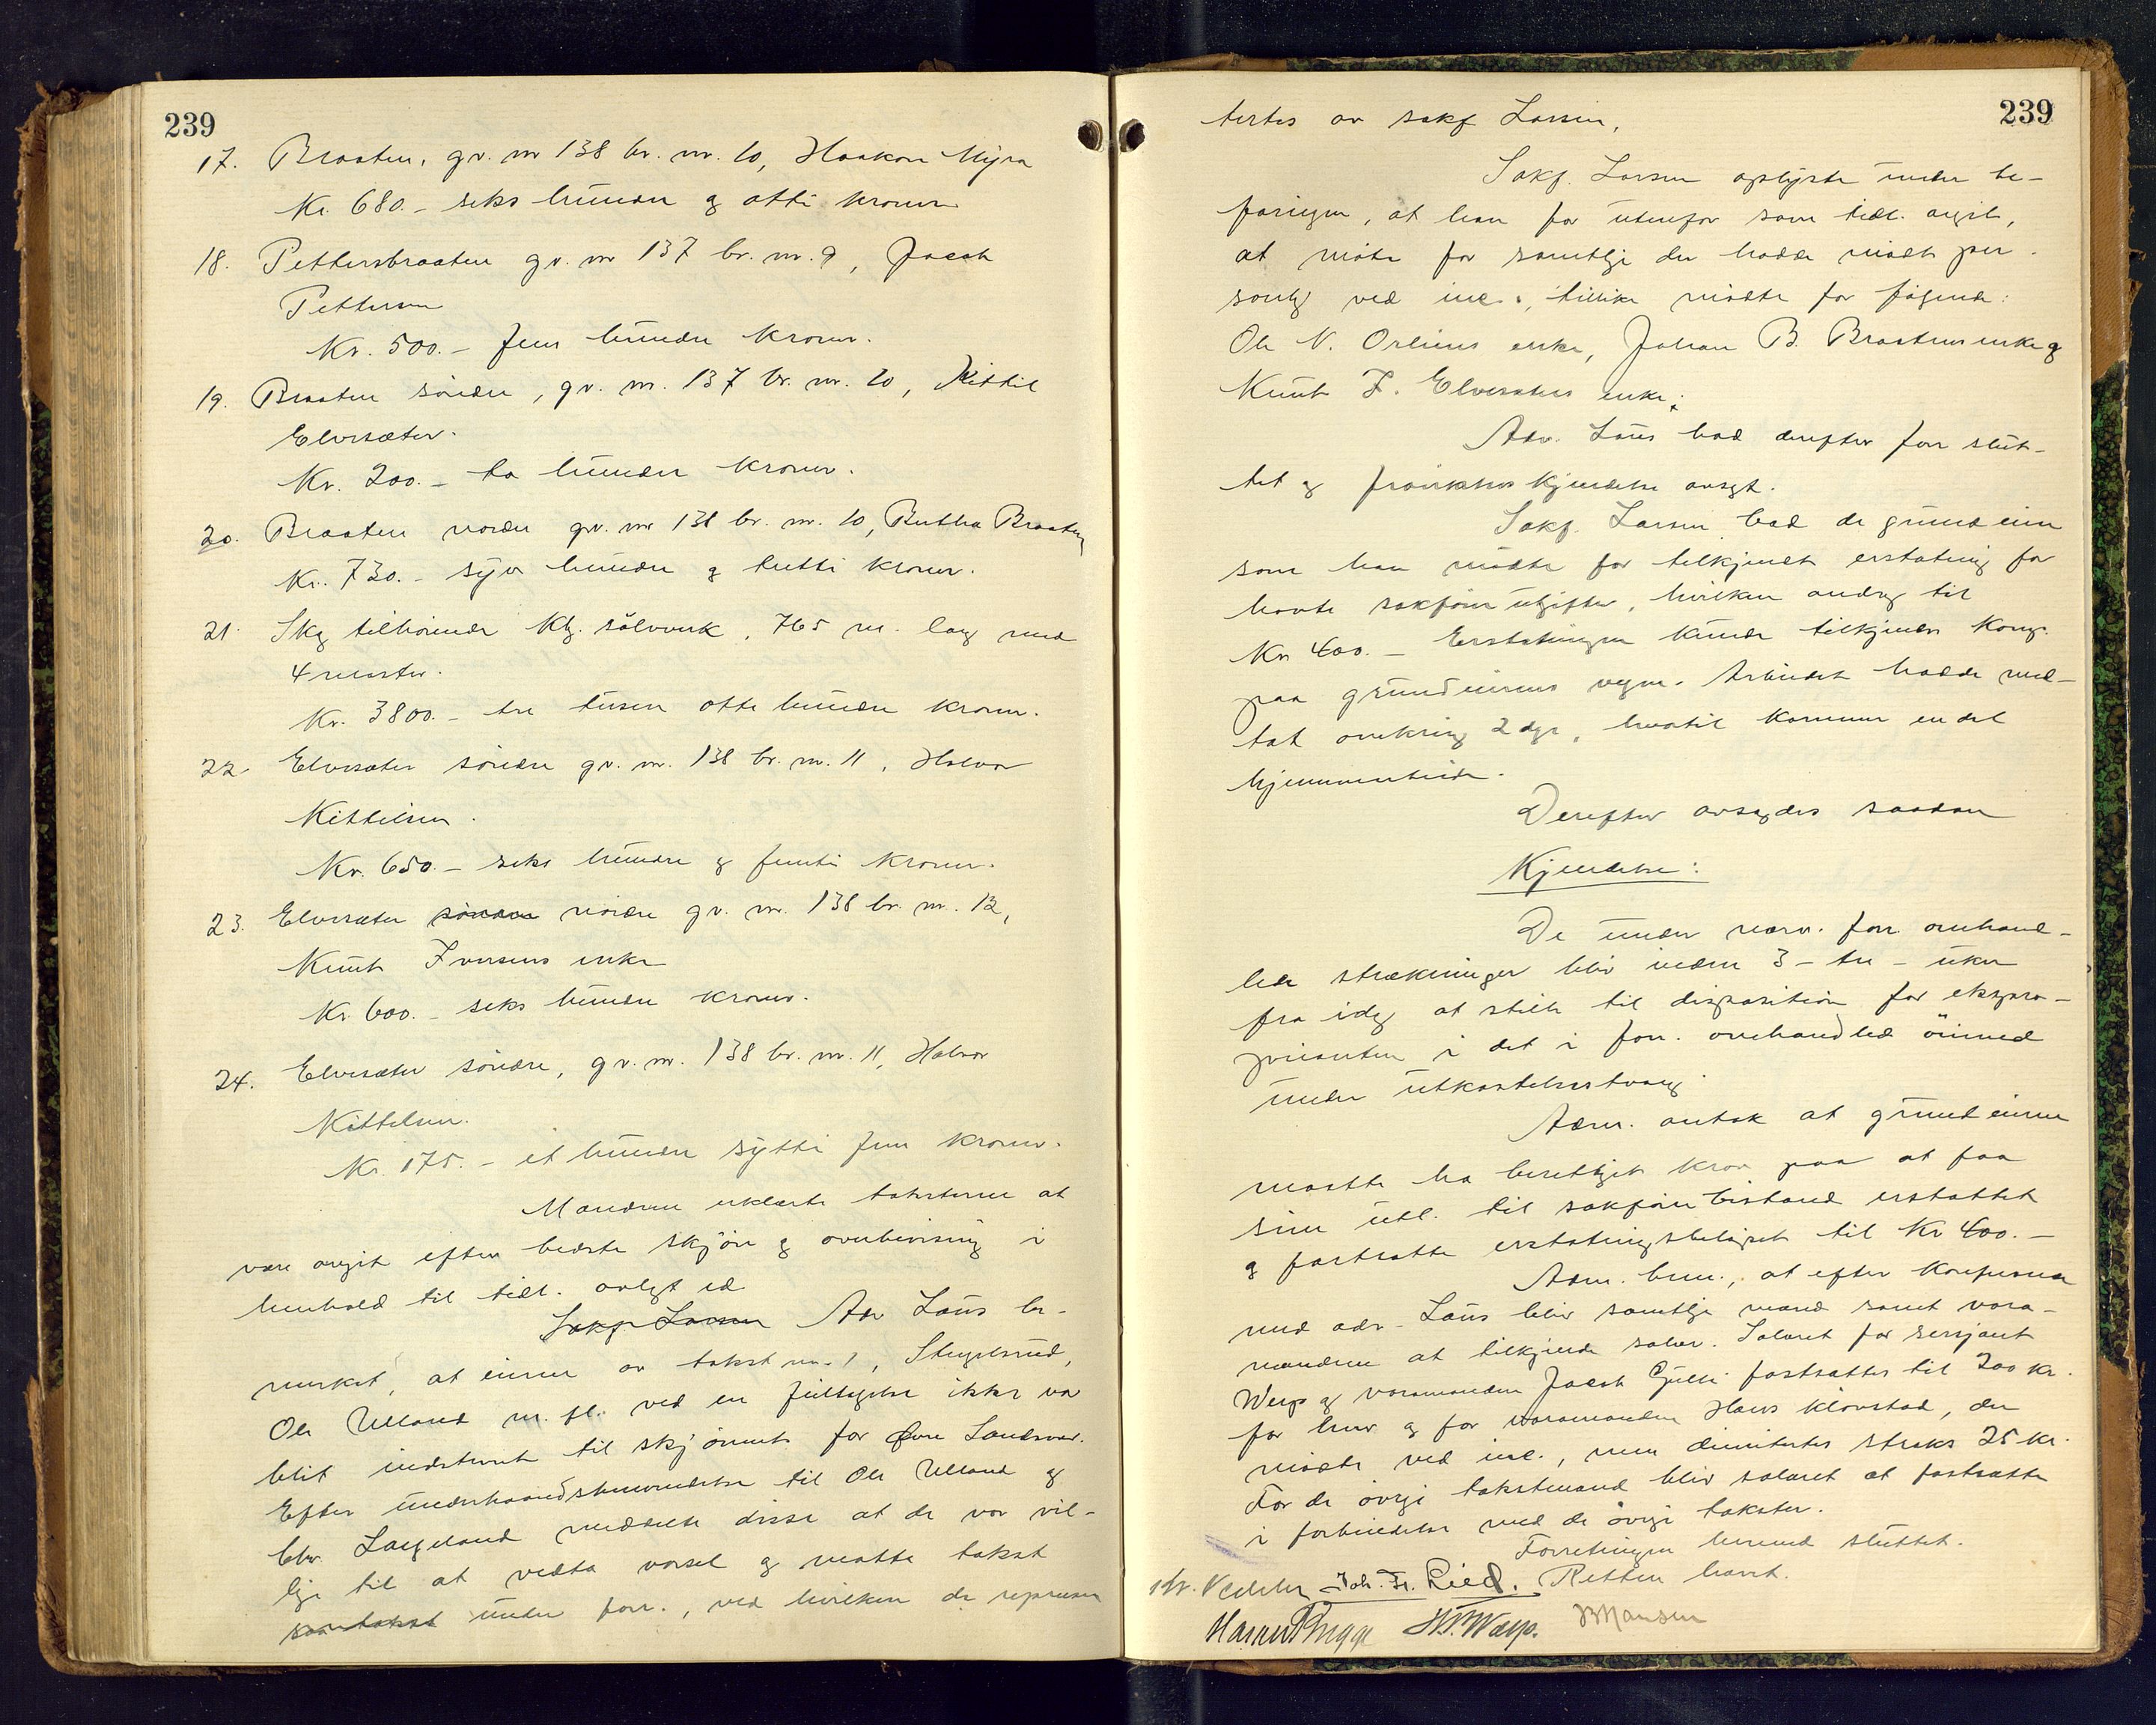 239
17. Braaten, gr. nr 138 br. nr. 10, Haakon Myra
Kr. 680.- seks hundre og otti kroner
18. Pettersbraaten gr. nr 137 br. nr. 9, Jacob
Pettersen
Kr. 500.- fem hundre kroner.
19. Braaten söndre, gr. nr. 137 br. nr. 10, Kittil
Elvesæter.
Kr. 200.- to hundre kroner.
20. Braaten nordre gr. nr 138 br. nr. 10, Berthe Braaten
Kr. 730.- syv hundre og tretti kroner.
21. Skog tilhörende Kbg. sölvverk, 765 m. lang med
4 master.
Kr. 3800.- tre tusen otte hundre kroner.
22. Elvesæter söndre gr. nr. 138 br. nr. 11, Halvor
Kittilsen.
Kr. 650.- seks hundre og femti kroner.
23. Elvesæter söndre nördre gr. nr. 138 br. nr. 12,
Knut Iversens enke
Kr. 600.- seks hundre kroner.
24. Elvesæter söndre, gr. nr. 138 br. nr. 11, Halvor
Kittelsen.
Kr. 175.- et hundre sytti fem kroner.
Mændene erklærte taksterne at
være avgit efter bedste skjön og overbevisning i
henhold til tidl. avlagt ed
Sakf. Larsen Adv Laus be-
merket, at eierne av takst nr. 1, Stengelsrud,
Ole Ulland m. fl. ved en feiltagelse ikke var
blit indstevnt til skjönnet for Övre Landsver.
Efter underhaandshenvendelse til Ole Ulland og
Chr. Langeland meddelte disse at de var vil-
lige til at vedta varsel og motta takst
saa takst under forr., ved hvilken de represen
239
tertes av sakf Larsen.
Sakf. Larsen oplyste under be-
faringen, at han for utenfor som tidl. avgit,
at möte for samtlige der hadde mödt per-
sonlig ved inc., tillike mödte for fölgende:
Ole N. Orliens enke, Johan B. Braatens enke og
Knut I. Elvesæters enke;
Adv. Laus bad derefter forr slut-
tet og fravikelses kjendelse avsagt.
Sakf. Larsen bad de grundeiere
som han mödte for tilkjendt erstatning for
havte sakförerutgifter, hvilken androg til
Kr 400.- Erstatningen kunde tilkjendes komp.
paa grundeiernes vegne. Arbeidet hadde med-
tat omkring 2 dage, hvortil kommer en del
hjemmearbeide.
Derefter avsagdes saadan
Kjendelse:
De under nærv. forr. omhand-
lede strækninger blir inden 3 - tre - uker
fra idag at stille til disposition for ekspro-
prianten i det i forr. omhandled öiemed
under utkastelsestvang.
Adm. antok at grundeierne
maatte ha berettiget krav paa at faa
sine utl. til sakförerbistand erstattet
og fastsatte erstatningsbelöpet til Kr 400.-
Adm. bem., at efter konferance
med adv. Laus blir samtlige mænd samt vara-
mændene at tilkjende salær. Salæret for sersjant
Werp og varamanden Jacob Gulli fastsattes til 200 kr.
for hver og for varamanden Hans Klovstad, der
mödte ved inc., men dimitertes straks 25 kr.
For de övrige takstmænd blir salæret at fastsætte
i forbindelse med de övrige takster.
Forretningen hermed sluttet.
Retten hævet.
Joh. Fr. Lied.
H. Werp.
B Hansen